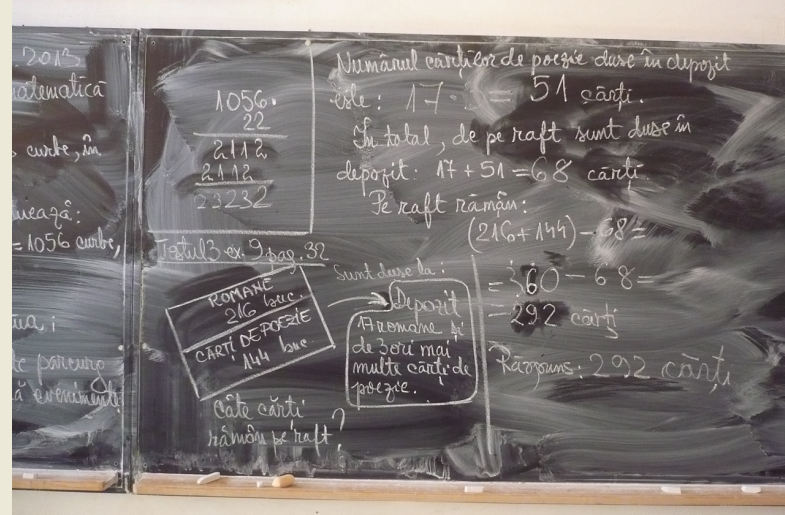 2013
matematică
curbe, în
ează:
= 1056 curbe,
parcurg
evenimente
1056.
22
2112
2112
23232
Testul 3 ex. 9 pag. 32
ROMANE
216 buc.
CĂRȚI DE POEZIE
144 buc
Sunt duse la:
Depozit
17 romane și
de 3 ori mai
multe cărți de
poezie.
Câte cărți
rămân pe raft?
Numărul cărților de poezie duse în depozit
este: 17 · = 51 cărți.
În total, de pe raft sunt duse în
depozit: 17 + 51 = 68 cărți.
Pe raft rămân:
(216 + 144) - 68 =
= 360 - 68 =
= 292 cărți
Răspuns: 292 cărți